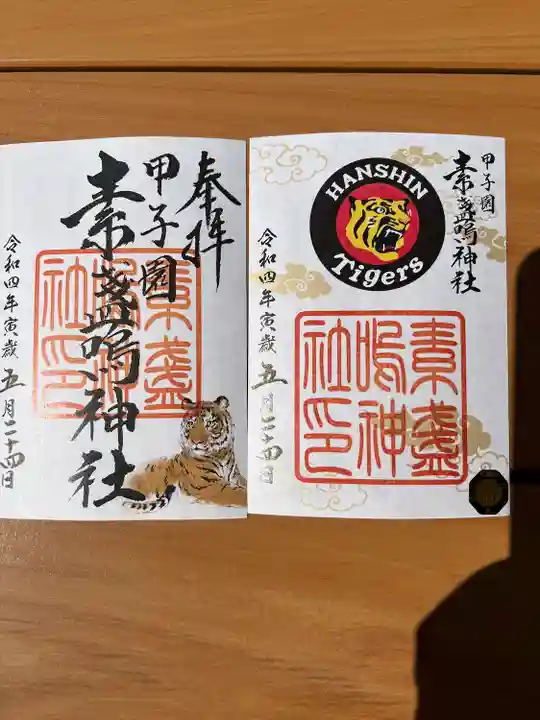 奉拝
甲子園
素盞嗚神社
素盞嗚神社印
令和四年寅歳五月二十四日
甲子園
素盞嗚神社
HANSHIN
Tigers
素盞
嗚神
社印
令和四年寅歳五月二十四日